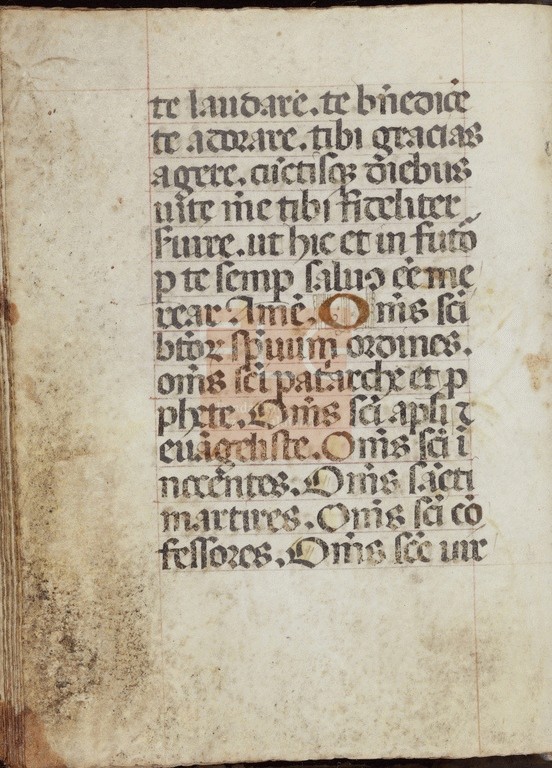 te laudare. te bn̄edice̅
te adorare. tibi gracias
agere. cūctisqꝫ diebus
uite m̄e tibi fideliter
s̄uire. ut hic et in futo᷑
p te semp saluꝯ eē me
rear Amē. Om̄s sc̄i
btōꝝ sp̄uum ordines.
om̄s sc̄i patarche et p
phete. Om̄s sc̄i apl̄i ⁊
euāgeliste. Om̄s sc̄i ī
nocentes. Om̄s sācti
martires. Om̄s sc̄i cō
fessores. Om̄s sc̄e uir